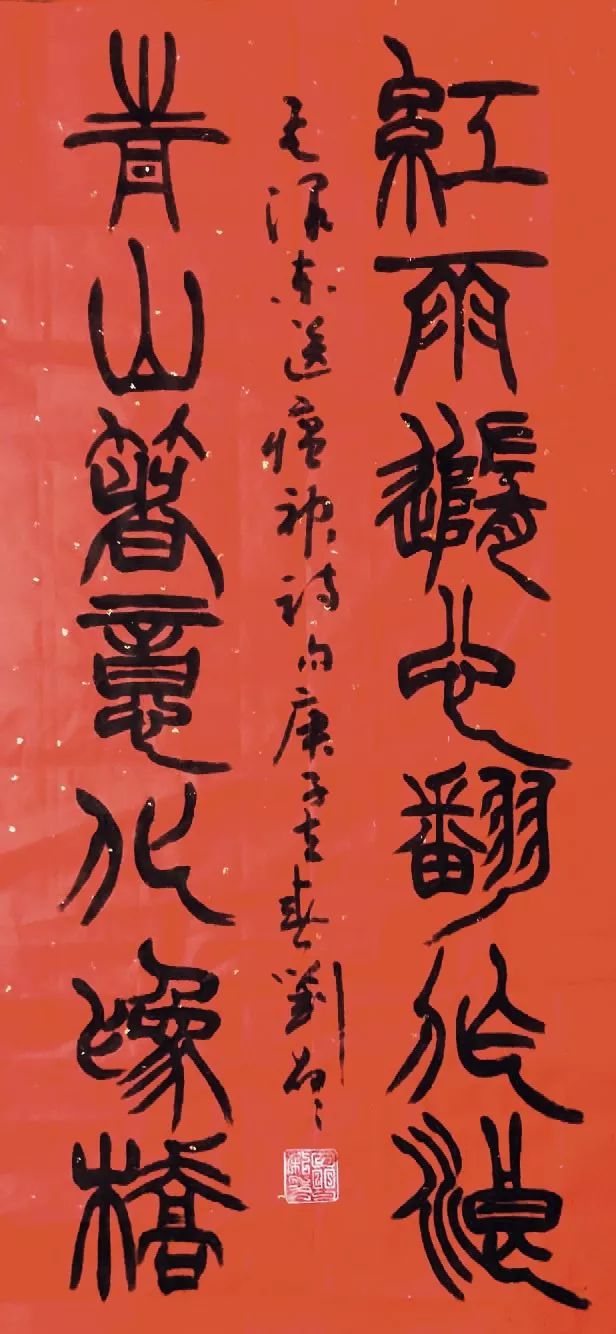 紅雨隨心翻作浪
毛澤東送瘟神詩句庚子立春劉
青山著意化為橋